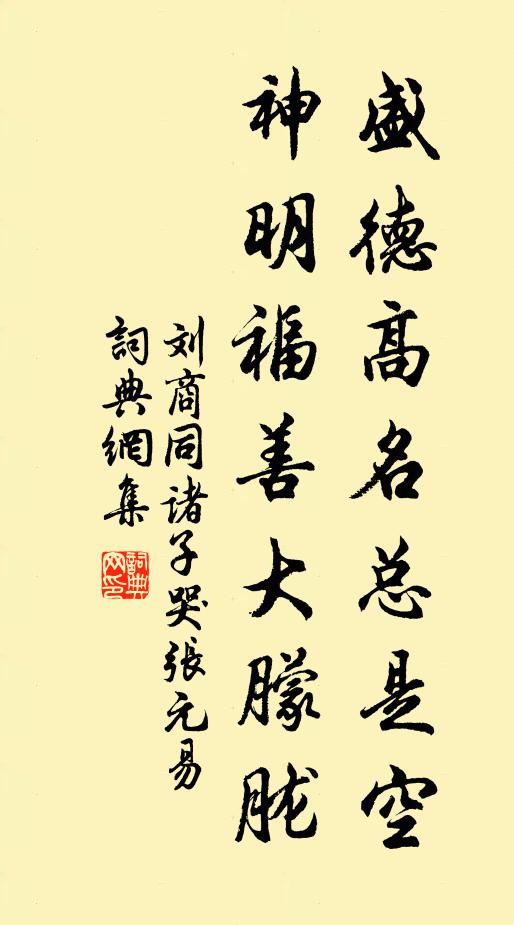 盛德高名总是空
神明福善大朦胧
刘商同诸子哭張元易
詞典網集
詞典
网印